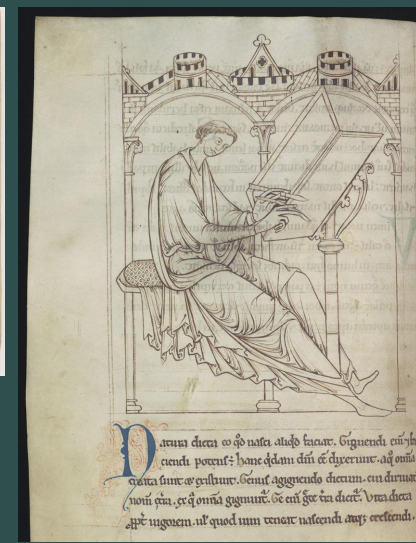 Natura dicta eo qđ nasci aliqđ faciat. Gignendi enī
ciendi potens ÷ hanc qdam dm̄ ēē dixerunt. aq̊ om̄ia
creata sunt & existunt. Genus agignendo dictum. cui diriuat̄
nom̄ ex q̊ om̄a gignunt̄. Ge enī gce t̄ra dicit̄. Vita dicta
ꝓpt̄ uigorem. ul̄ quod uim teneat nascendi atq; crescendi.